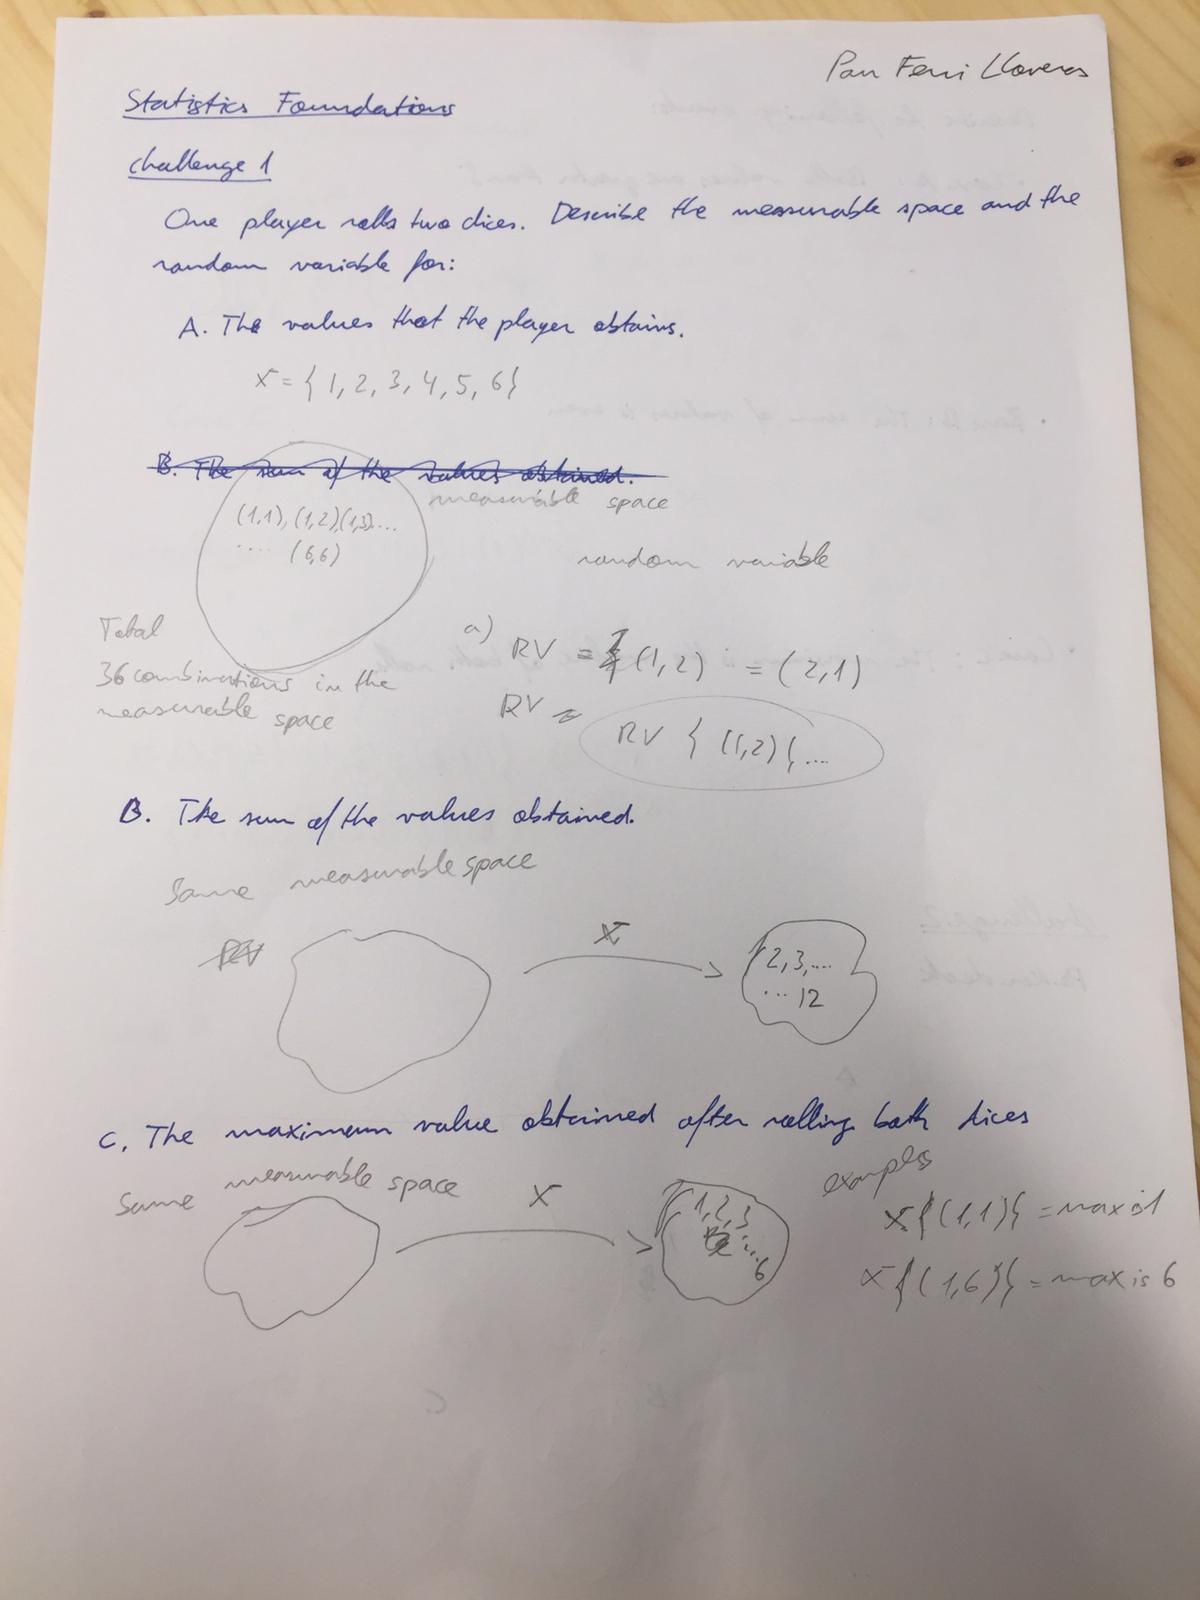 Pau Ferri Lloveras
Statistics Foundations
Challenge 1
One player rolls two dices. Describe the measurable space and the
random variable for:
A. The values that the player obtains.
X = { 1, 2, 3, 4, 5, 6 }
B. The sum of the values obtained.
measurable space
(1,1), (1,2) (1,3)....
.... (6,6)
random variable
Total
36 combinations in the
measurable space
a) RV = (1,2) = (2,1)
RV =
RV { (1,2) {, ....
B. The sum of the values obtained.
Same measurable space
RV
X
2, 3, ....
... 12
C. The maximum value obtained after rolling both dices
Same measurable space
X
1, 2, 3
...
6
examples
X {(1,1)} = max is 1
X {(1,6)} = max is 6